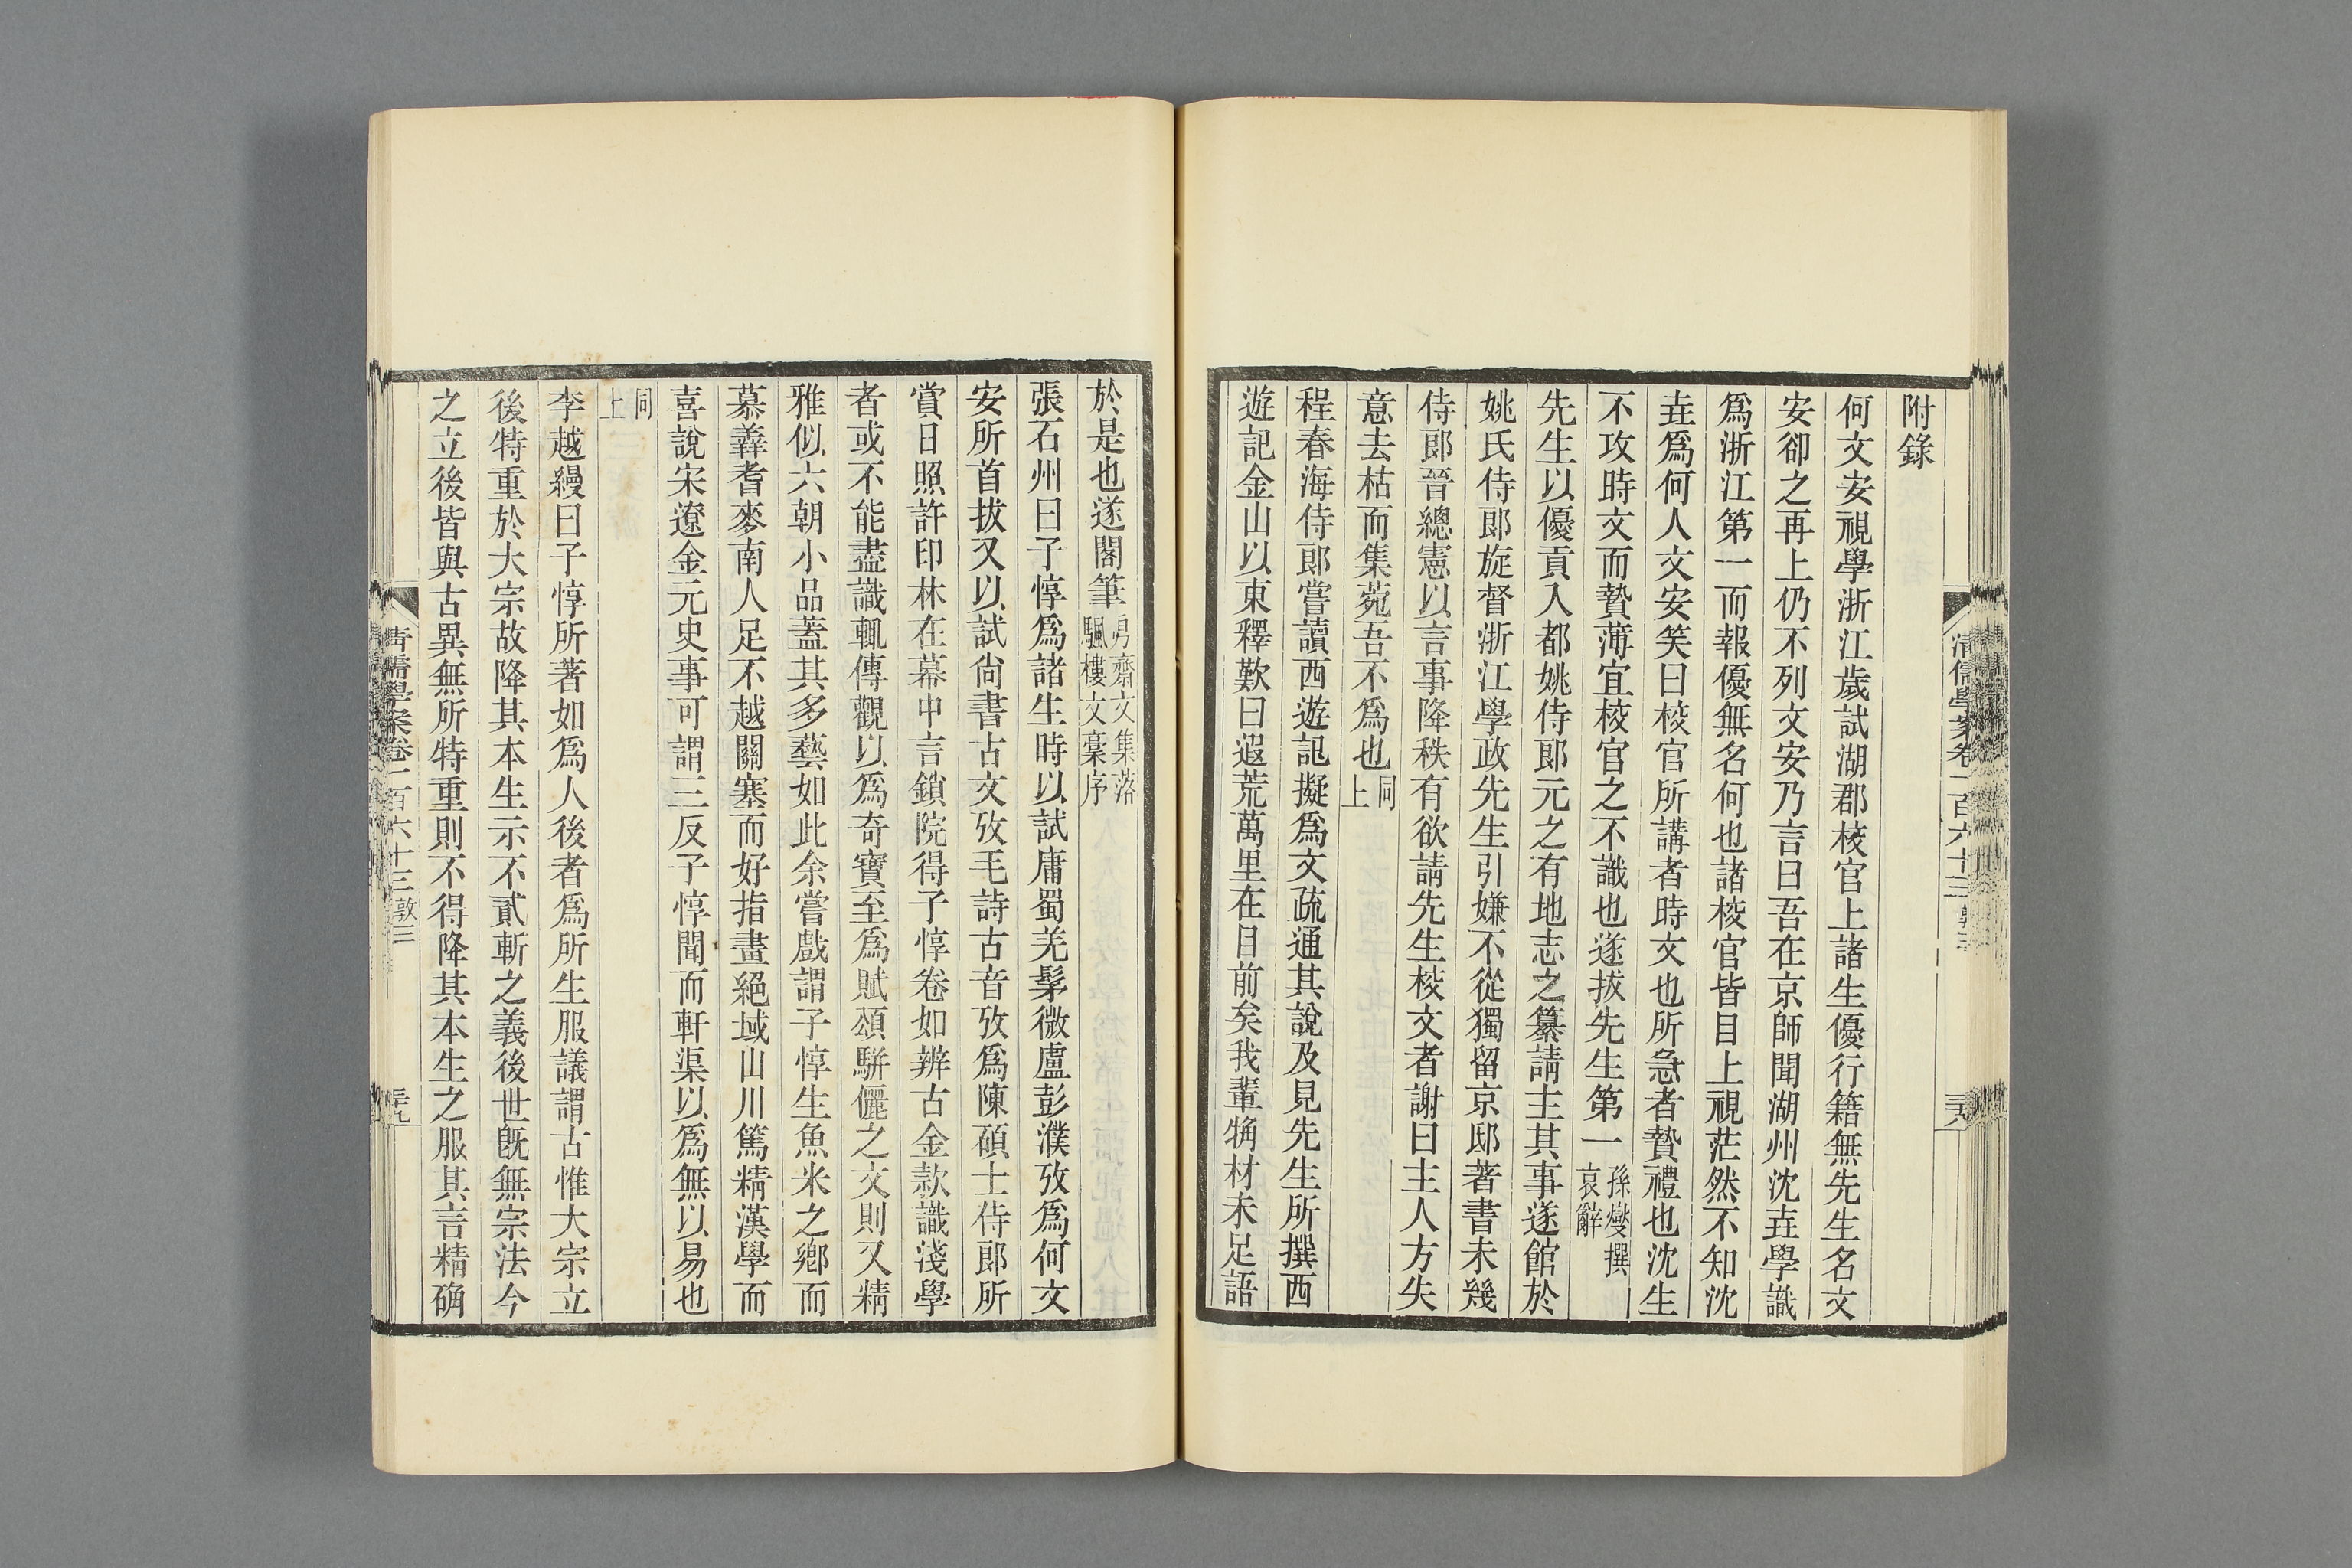 附錄
何文安視學浙江歲試湖郡校官上諸生優行籍無先生名文
安卻之再上仍不列文安乃言曰吾在京師聞湖州沈垚學識
爲浙江第一而報優無名何也諸校官皆目上視茫然不知沈
垚爲何人文安笑曰校官所講者時文也所急者贄禮也沈生
不攻時文而贄薄宜校官之不識也遂拔先生第一孫燮撰
哀辭
先生以優貢入都姚侍郎元之有地志之纂請主其事遂館於
姚氏侍郎旋督浙江學政先生引嫌不從獨留京邸著書未幾
侍郎晉總憲以言事降秩有欲請先生校文者謝曰主人方失
意去枯而集菀吾不爲也同
上
程春海侍郎嘗讀西遊記擬爲文疏通其說及見先生所撰西
遊記金山以東釋歎曰遐荒萬里在目前矣我輩觕材未足語
清儒學案卷二百六十三 敦三
於是也遂閣筆㐆齋文集落
颿樓文稾序
張石州曰子惇爲諸生時以試庸蜀羌髳微盧彭濮攷爲何文
安所首拔又以試尙書古文攷毛詩古音攷爲陳碩士侍郎所
賞日照許印林在幕中言鎖院得子惇卷如辨古金款識淺學
者或不能盡識輒傳觀以爲奇寶至爲賦頌駢儷之文則又精
雅似六朝小品蓋其多藝如此余嘗戲謂子惇生魚米之鄕而
慕羴耆麥南人足不越關塞而好指畫絕域山川篤精漢學而
喜說宋遼金元史事可謂三反子惇聞而軒渠以爲無以易也
同
上
李越縵曰子惇所著如爲人後者爲所生服議謂古惟大宗立
後特重於大宗故降其本生示不貳斬之義後世旣無宗法今
之立後皆與古異無所特重則不得降其本生之服其言精确
清儒學案卷一百六十三 敦三